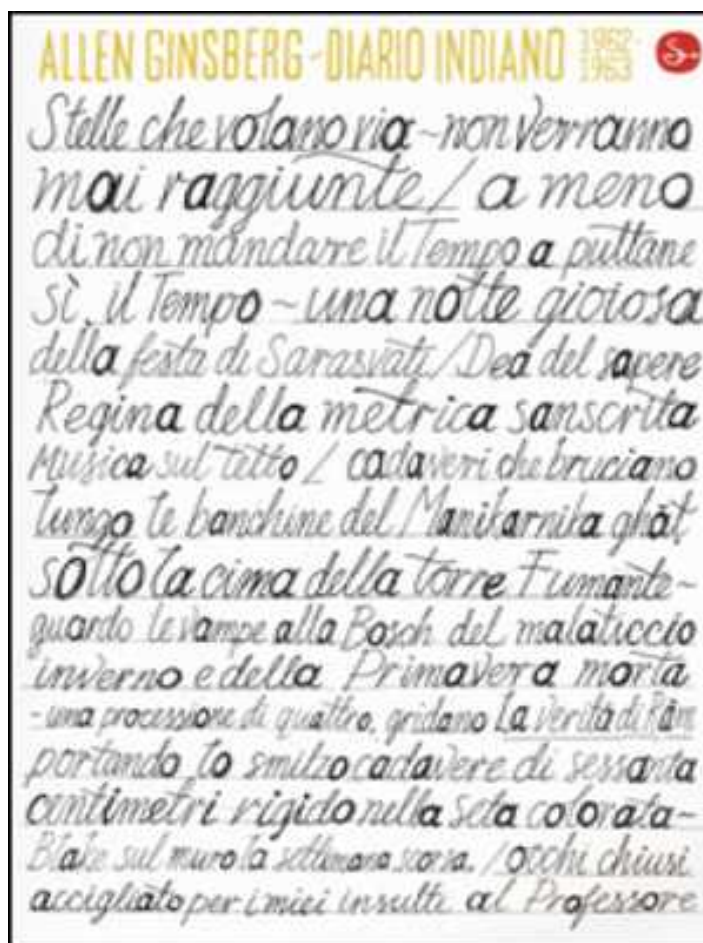 ALLEN GINSBERG - DIARIO INDIANO 1962-1963
Stelle che volano via ~ non verranno
mai raggiunte / a meno
di non mandare il Tempo a puttane
sì, il Tempo ~ una notte gioiosa
della festa di Sarasvati / Dea del sapere
Regina della metrica sanscrita
Musica sul tetto / cadaveri che bruciano
lungo le banchine del Manikarnika ghāt
sotto la cima della torre Fumante ~
guardo le vampe alla Bosch del malaticcio
inverno e della Primavera morta
- una processione di quattro, gridano La verità di Rām
portando lo smilzo cadavere di sessanta
centimetri rigido nella seta colorata ~
Blake sul muro la settimana scorsa. / occhi chiusi
accigliato per i miei insulti al Professore